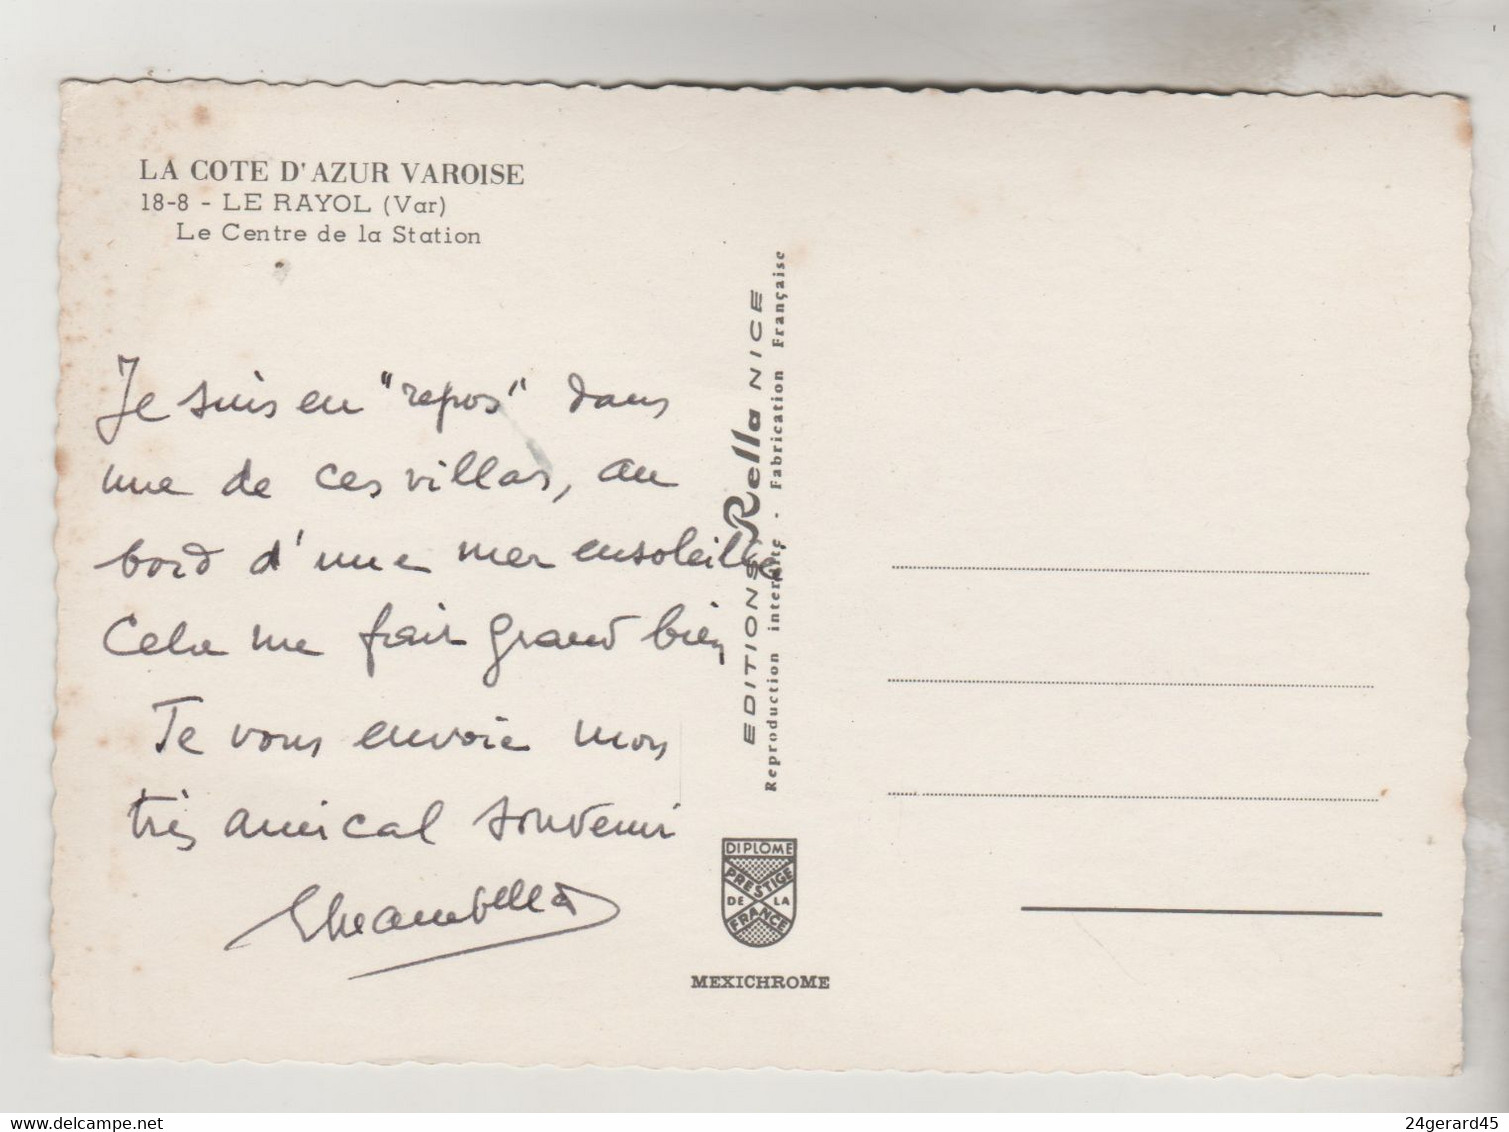 LA COTE D'AZUR VAROISE
18-8 - LE RAYOL (Var)
Le Centre de la Station
Je suis en "repos" dans
une de ces villas, au
bord d'une mer ensoleillée.
Cela me fait grand bien
Je vous envoie mon
très amical souvenir
EDITIONS Rella NICE
Reproduction interdite - Fabrication Française
DIPLOME
PRESTIGE
DE LA
FRANCE
MEXICHROME
delcampe.net
24gerard45